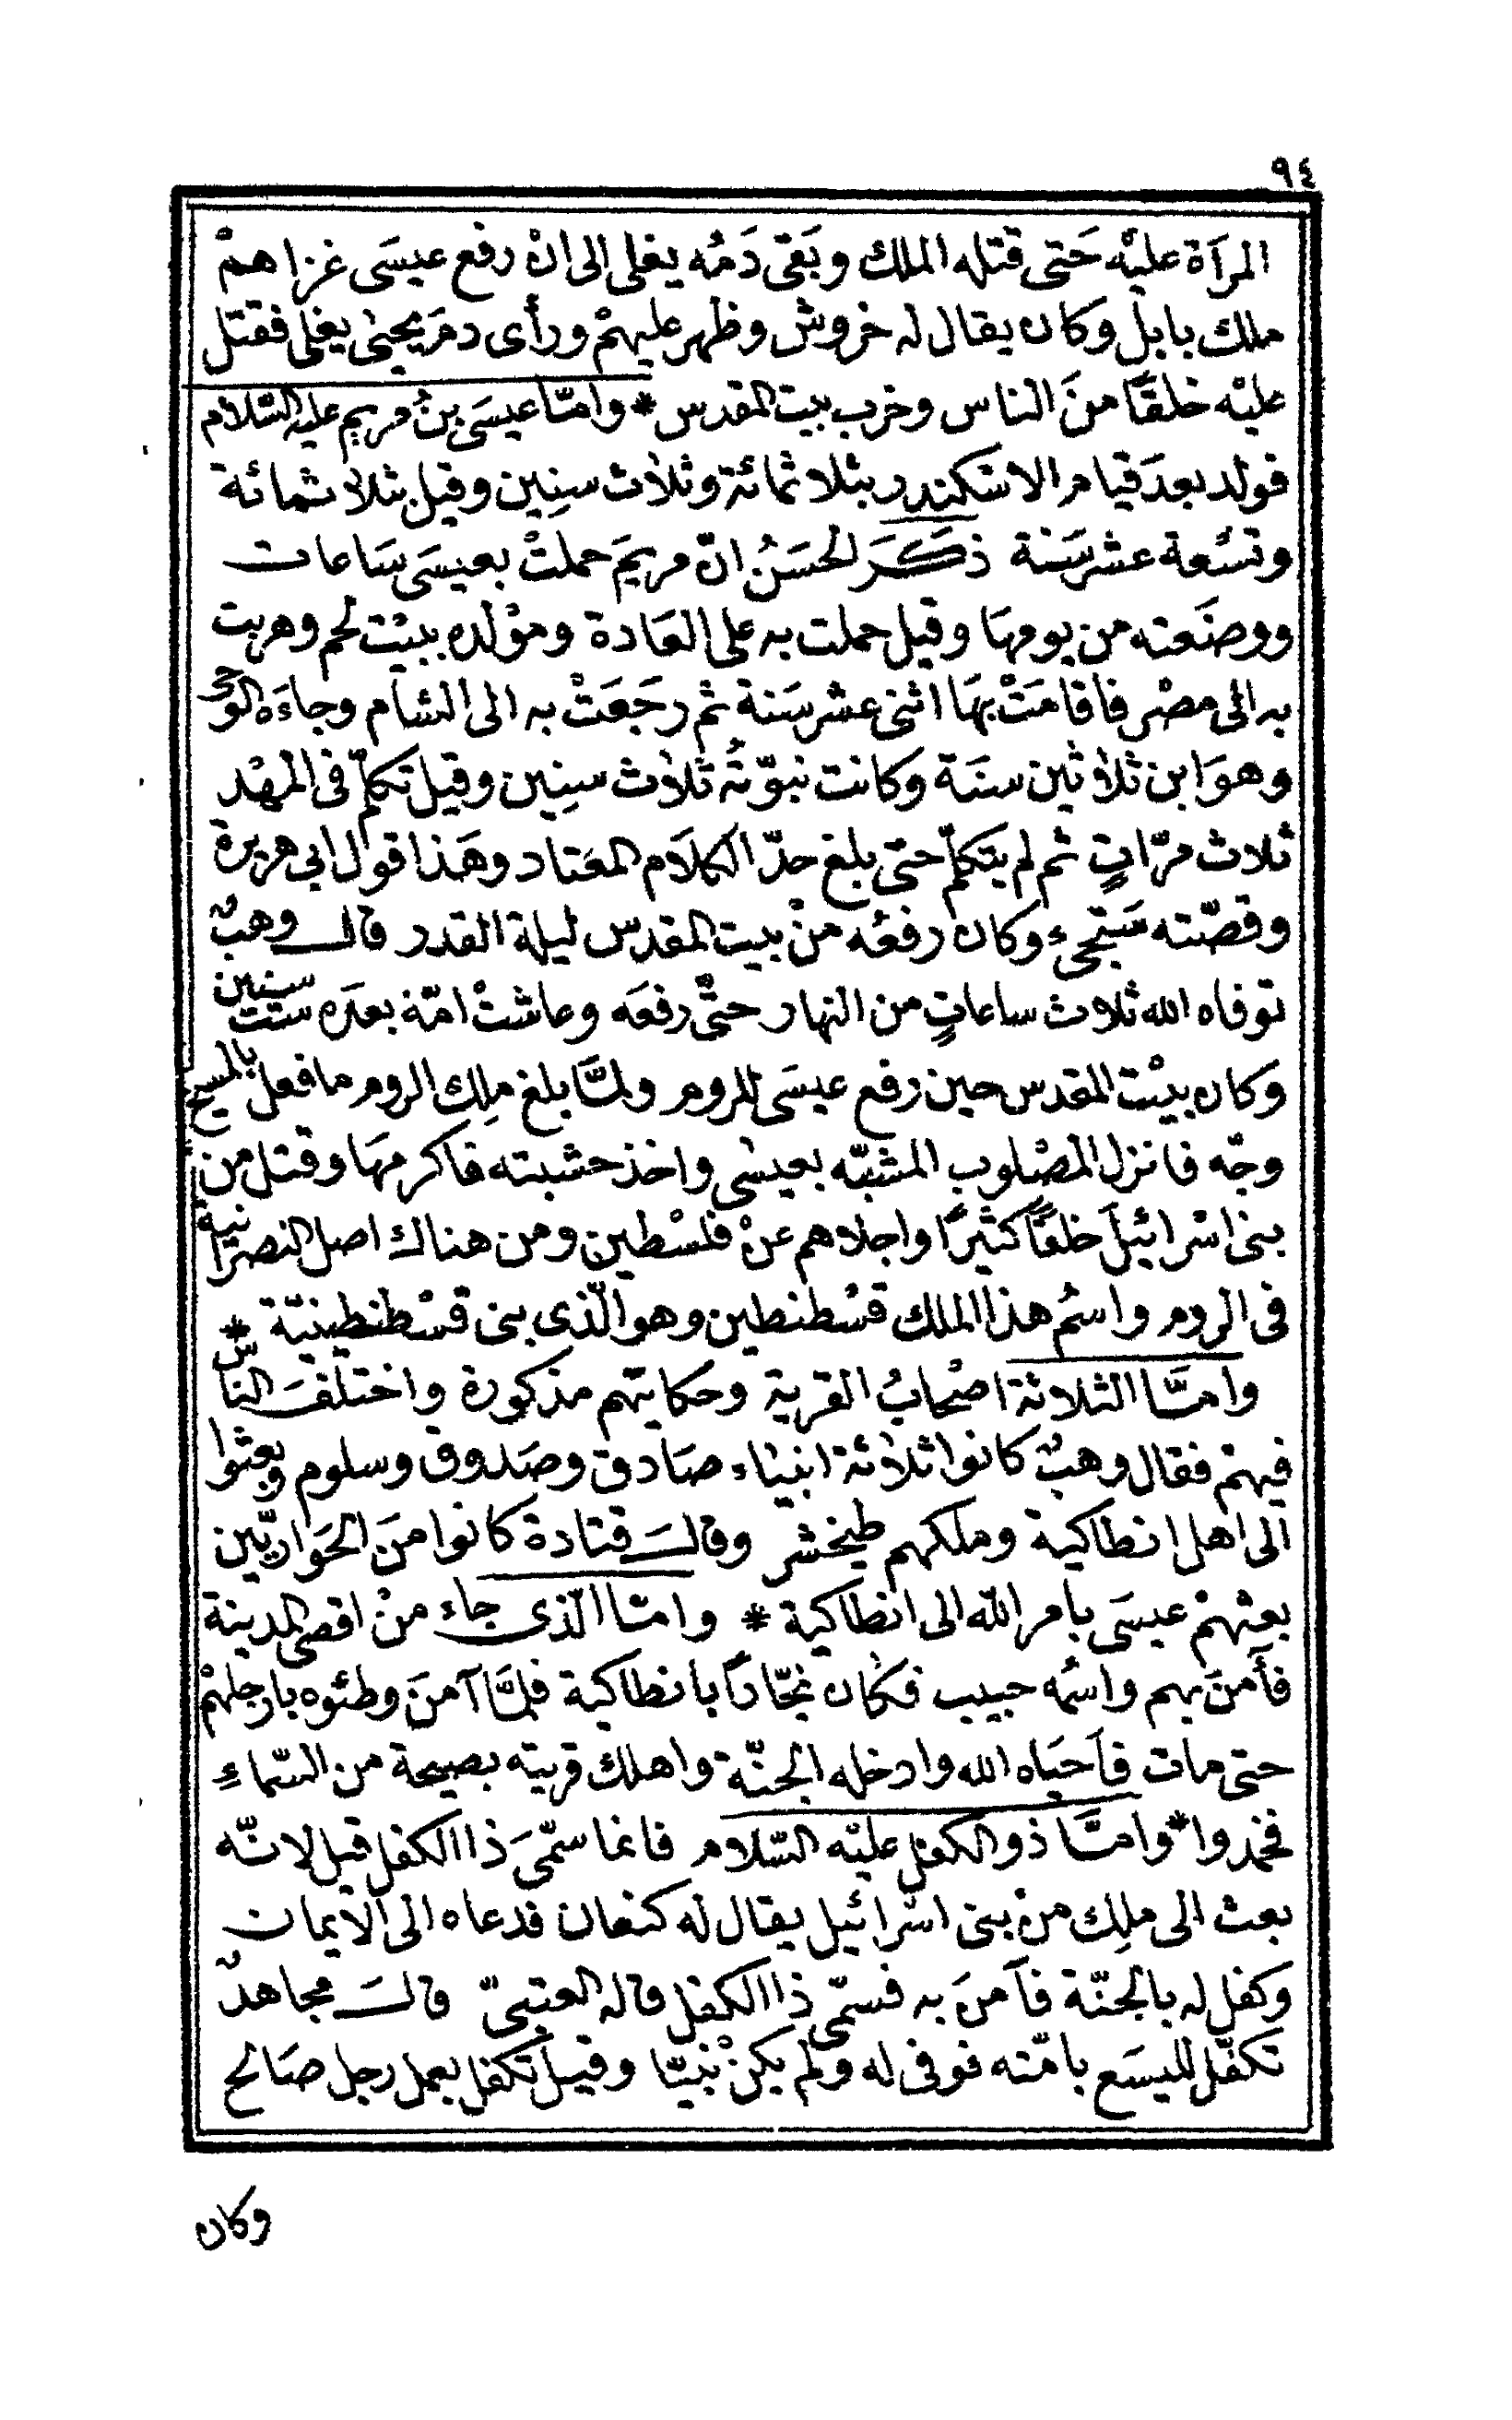 ٩٤
المرآة عليْه حَتى قتله الملك وبَقى دَمُه يغلى الى انْ رفع عيسَى غزاهمْ
ملك بابل وكان يقال له خروش وظهر عليهمْ ورأى دمَ يحيىٰ يغلى فقتل
عليْه خلقًا منَ الناس وخرب بيت المقدس * وامّا عيسَى بنُ مريم عليه السّلام
فولد بعدَ قيام الاسْكندر بثلاثمائة وثلاث سنِين وقيل بثلاثمائة
وتسْعة عشر سَنة ذكَرَ الحسَنُ انّ مريَم حملتْ بعيسَى سَاعات
ووضَعته من يومهَا وقيل حملت به على العَادة ومؤلده ببيْت لحم وهربت
به الى مصْر فاقامَتْ بهَا اثنى عشر سَنة ثم رجَعَتْ به الى الشام وجاءَه الوَحى
وهوَ ابن ثلاثين سنَة وكانت نبوّتُه ثلاث سنِين وقيل تكلّم فى المهْد
ثلاث مرّاتٍ ثم لم يتكلّم حتى بلغ حدّ الكلَام المعَتاد وهَذا قول ابى هريرة
وقصّته ستجىء وكان رفعُه منْ بيت المقدس ليلة القدر قالـــ وهبٌ
توفاه الله ثلاث ساعاتٍ من النهار حتّى رفعَه وعاشتْ امّه بعدَه ستّ سنين
وكان بيْت المقدس حين رفع عيسَى للروم ولمّا بلغ ملِك الروم ما فعل بالمسيح
وجّه فانزل المصْلوب المشبّه بعيسٰى واخذ خشبته فاكرمهَا وقتل من
بنى اسْرائيلَ خلقًا كثيرًا واجلاهم عنْ فلسْطين ومن هناك اصل النصرانيّة
فى الروم واسْمُ هذا الملك قسْطنطين وهو الّذى بنى قسْطنطينيّة *
وامّا الثلاثة اصْحابُ القرية وحكايتهم مذكورة واختلفَ الناس
فيهمْ فقال وهبٌ كانوا ثلاثة انبيَاء صَادق وصَدوق وسلوم وبعثوا
الى اهل انطاكية وملكهم طيخشر وقالــَ قتادة كانوا منَ الحَواريّين
بعثهمْ عيسَى بامر الله الى انطاكية * وامّا الّذى جاء منْ اقصى المدينة
فأمنَ بهم واسْمُه حبيب فكان نجّارًا بانطاكية فلمَّا آمنَ وطئوه بارجلهمْ
حتى مات فاَحيَاه الله وادخله الجنّة واهلك قريته بصيحة من السّماءِ
فخمدوا * وامّا ذو الكفل عليْه السّلام فانما سمّىَ ذا الكفل قيل لانّه
بعث الى ملِك منْ بنى اسْرائيل يقال له كنعان فدعاه الى الْايمان
وكفل له بالجنّة فآمنَ به فسمّى ذا الكفل قاله العتبىّ قالــَ مجاهدٌ
تكفّل لليسَع بامّته فوفى له ولم يكنْ نبيّا وقيل تكفل بعمل رجل صَالح
وكان